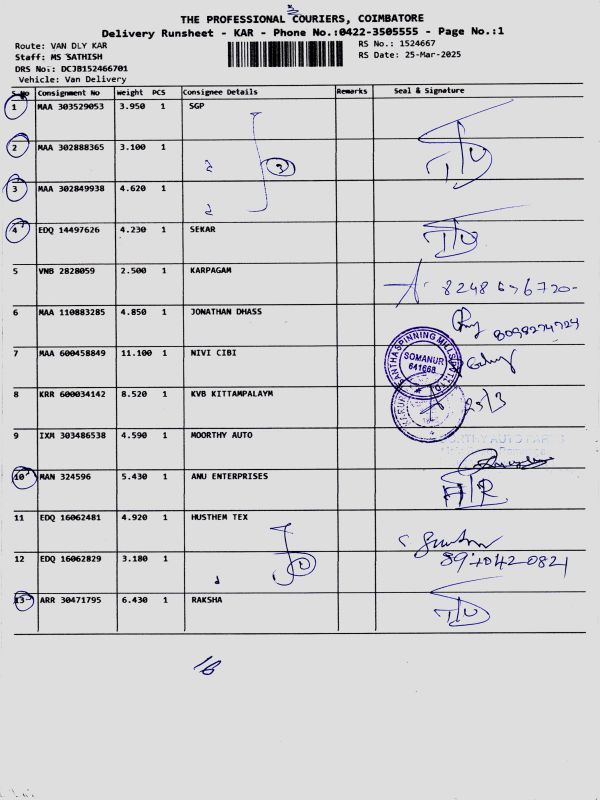 THE PROFESSIONAL COURIERS, COIMBATORE
Delivery Runsheet - KAR - Phone No.:0422-3505555 - Page No.:1
Route: VAN DLY KAR
Staff: MS SATHISH
DRS No.: DCJB152466701
Vehicle: Van Delivery
RS No.: 1524667
RS Date: 25-Mar-2025
S No Consignment No Weight PCS Consignee Details Remarks Seal & Signature
1 MAA 303529053 3.950 1 SGP
2 MAA 302888365 3.100 1
3
3 MAA 302849938 4.620 1
4 EDQ 14497626 4.230 1 SEKAR
5 VNB 2828059 2.500 1 KARPAGAM
6 MAA 110883285 4.850 1 JONATHAN DHASS
7 MAA 600458849 11.100 1 NIVI CIBI
SOMANUR
641668
8 KRR 600034142 8.520 1 KVB KITTAMPALAYM
25/3
9 IXM 303486538 4.590 1 MOORTHY AUTO
10 MAN 324596 5.430 1 ANU ENTERPRISES
11 EDQ 16062481 4.920 1 HUSTHEM TEX
12 EDQ 16062829 3.180 1
13 ARR 30471795 6.430 1 RAKSHA